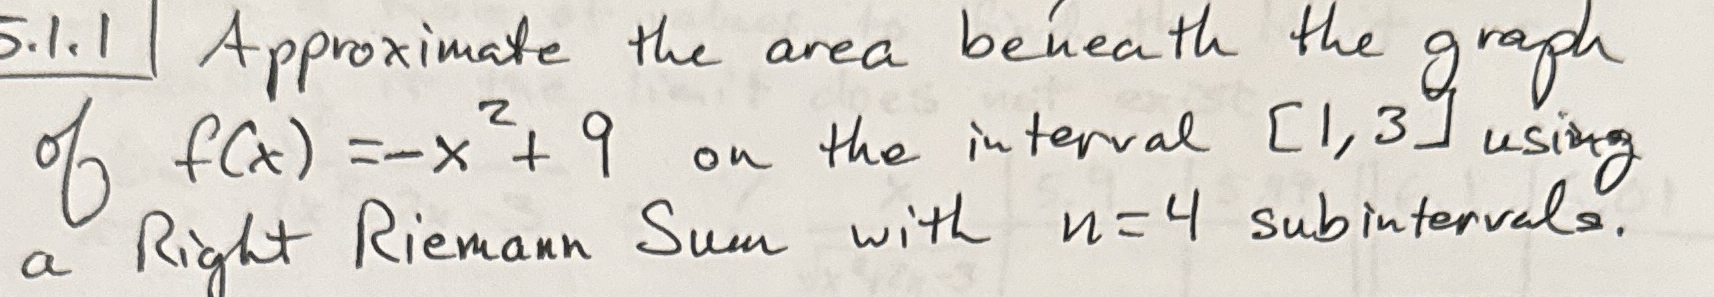 5.1.1 Approximate the area beneath the graph
of f(x) = -x² + 9 on the interval [1, 3] using
a Right Riemann Sum with n = 4 subintervals.